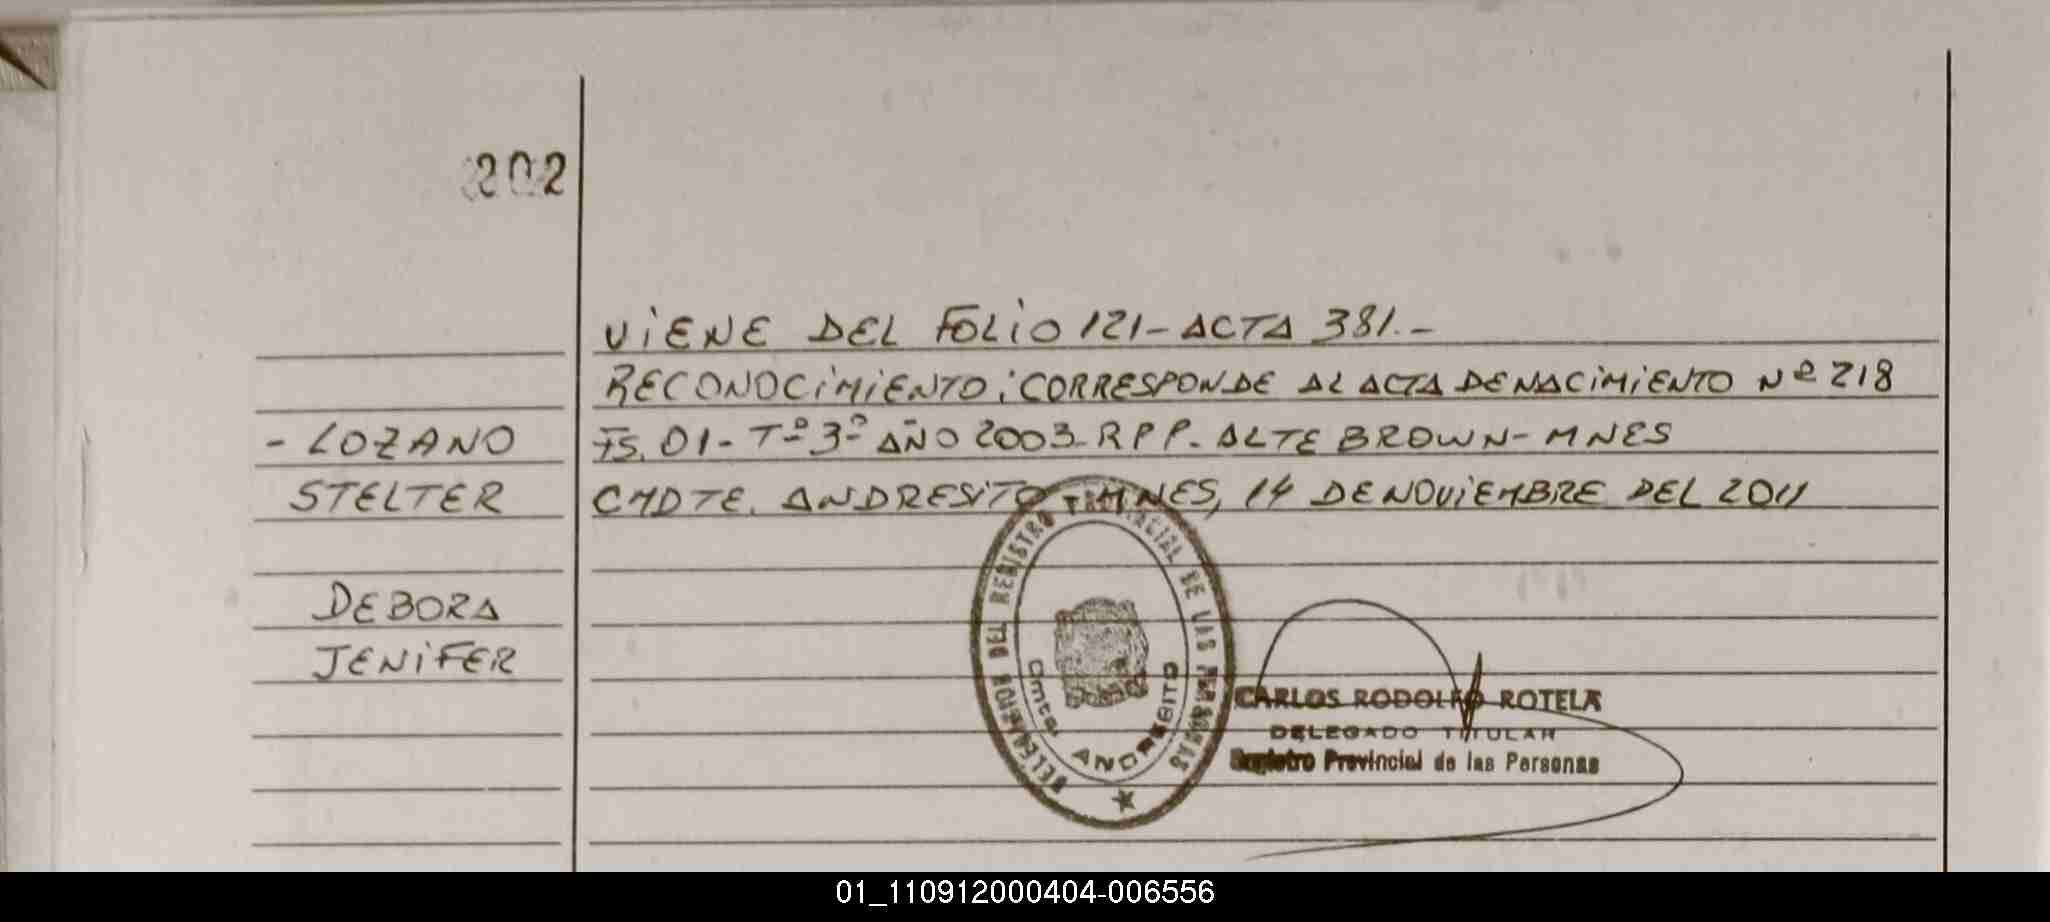 202
VIENE DEL FOLIO 121- ACTA 381.-
RECONOCIMIENTO: CORRESPONDE AL ACTA DE NACIMIENTO Nº 218
- LOZANO
FS. 01- Tº 3º AÑO 2003- R P P. ALTE BROWN- MNES
STELTER
CMDTE. ANDRESITO - MNES, 14 DE NOVIEMBRE DEL 2011
DEBORA
JENIFER
DELEGACION DEL REGISTRO PROVINCIAL DE LAS PERSONAS
Cmte. ANDRESITO
CARLOS RODOLFO ROTELA
DELEGADO TITULAR
Registro Provincial de las Personas
01_110912000404-006556